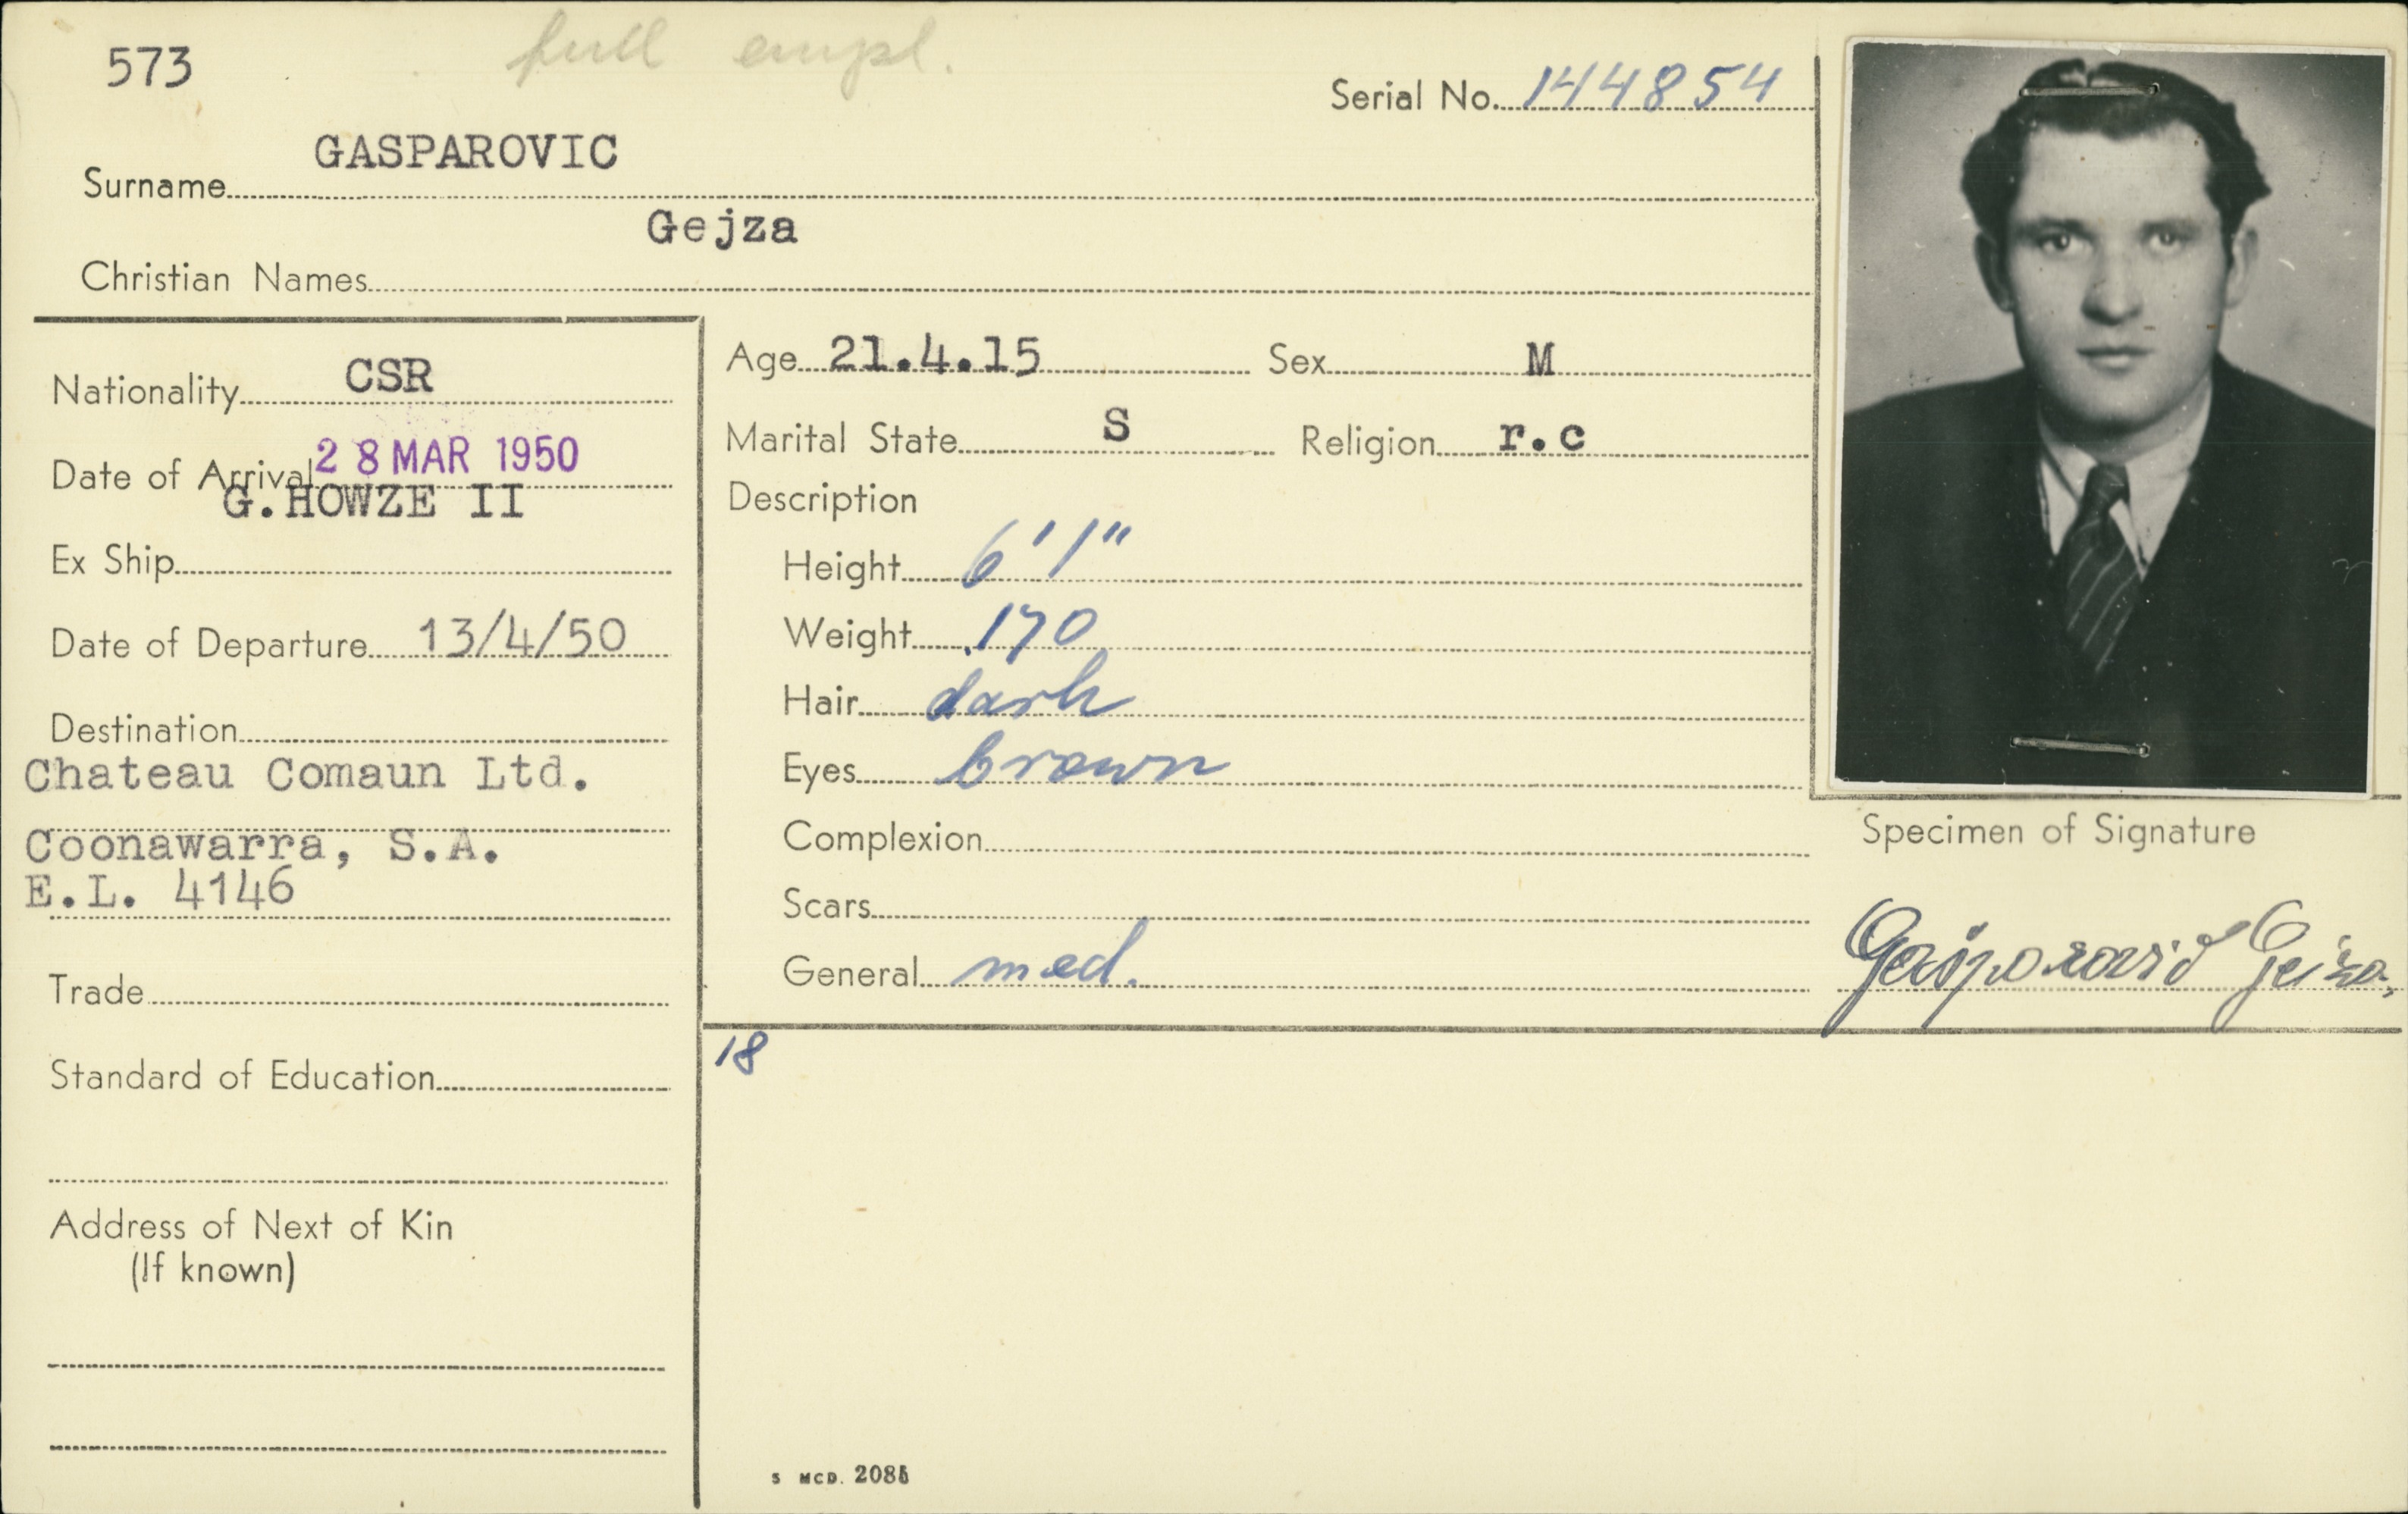 573
full empl.
Serial No. 144854
Surname GASPAROVIC
Christian Names Gejza
Nationality CSR
Date of Arrival 28 MAR 1950
G.HOWZE II
Ex Ship
Date of Departure 13/4/50
Destination
Chateau Comaun Ltd.
Coonawarra, S.A.
E.L. 4146
Trade
Standard of Education
Address of Next of Kin
(If known)
Age 21.4.15 Sex M
Marital State S Religion r.c
Description
Height 6'1"
Weight 170
Hair dark
Eyes brown
Complexion
Scars
General med.
Specimen of Signature
Gašparovič Gejza
18
S MCD. 2085